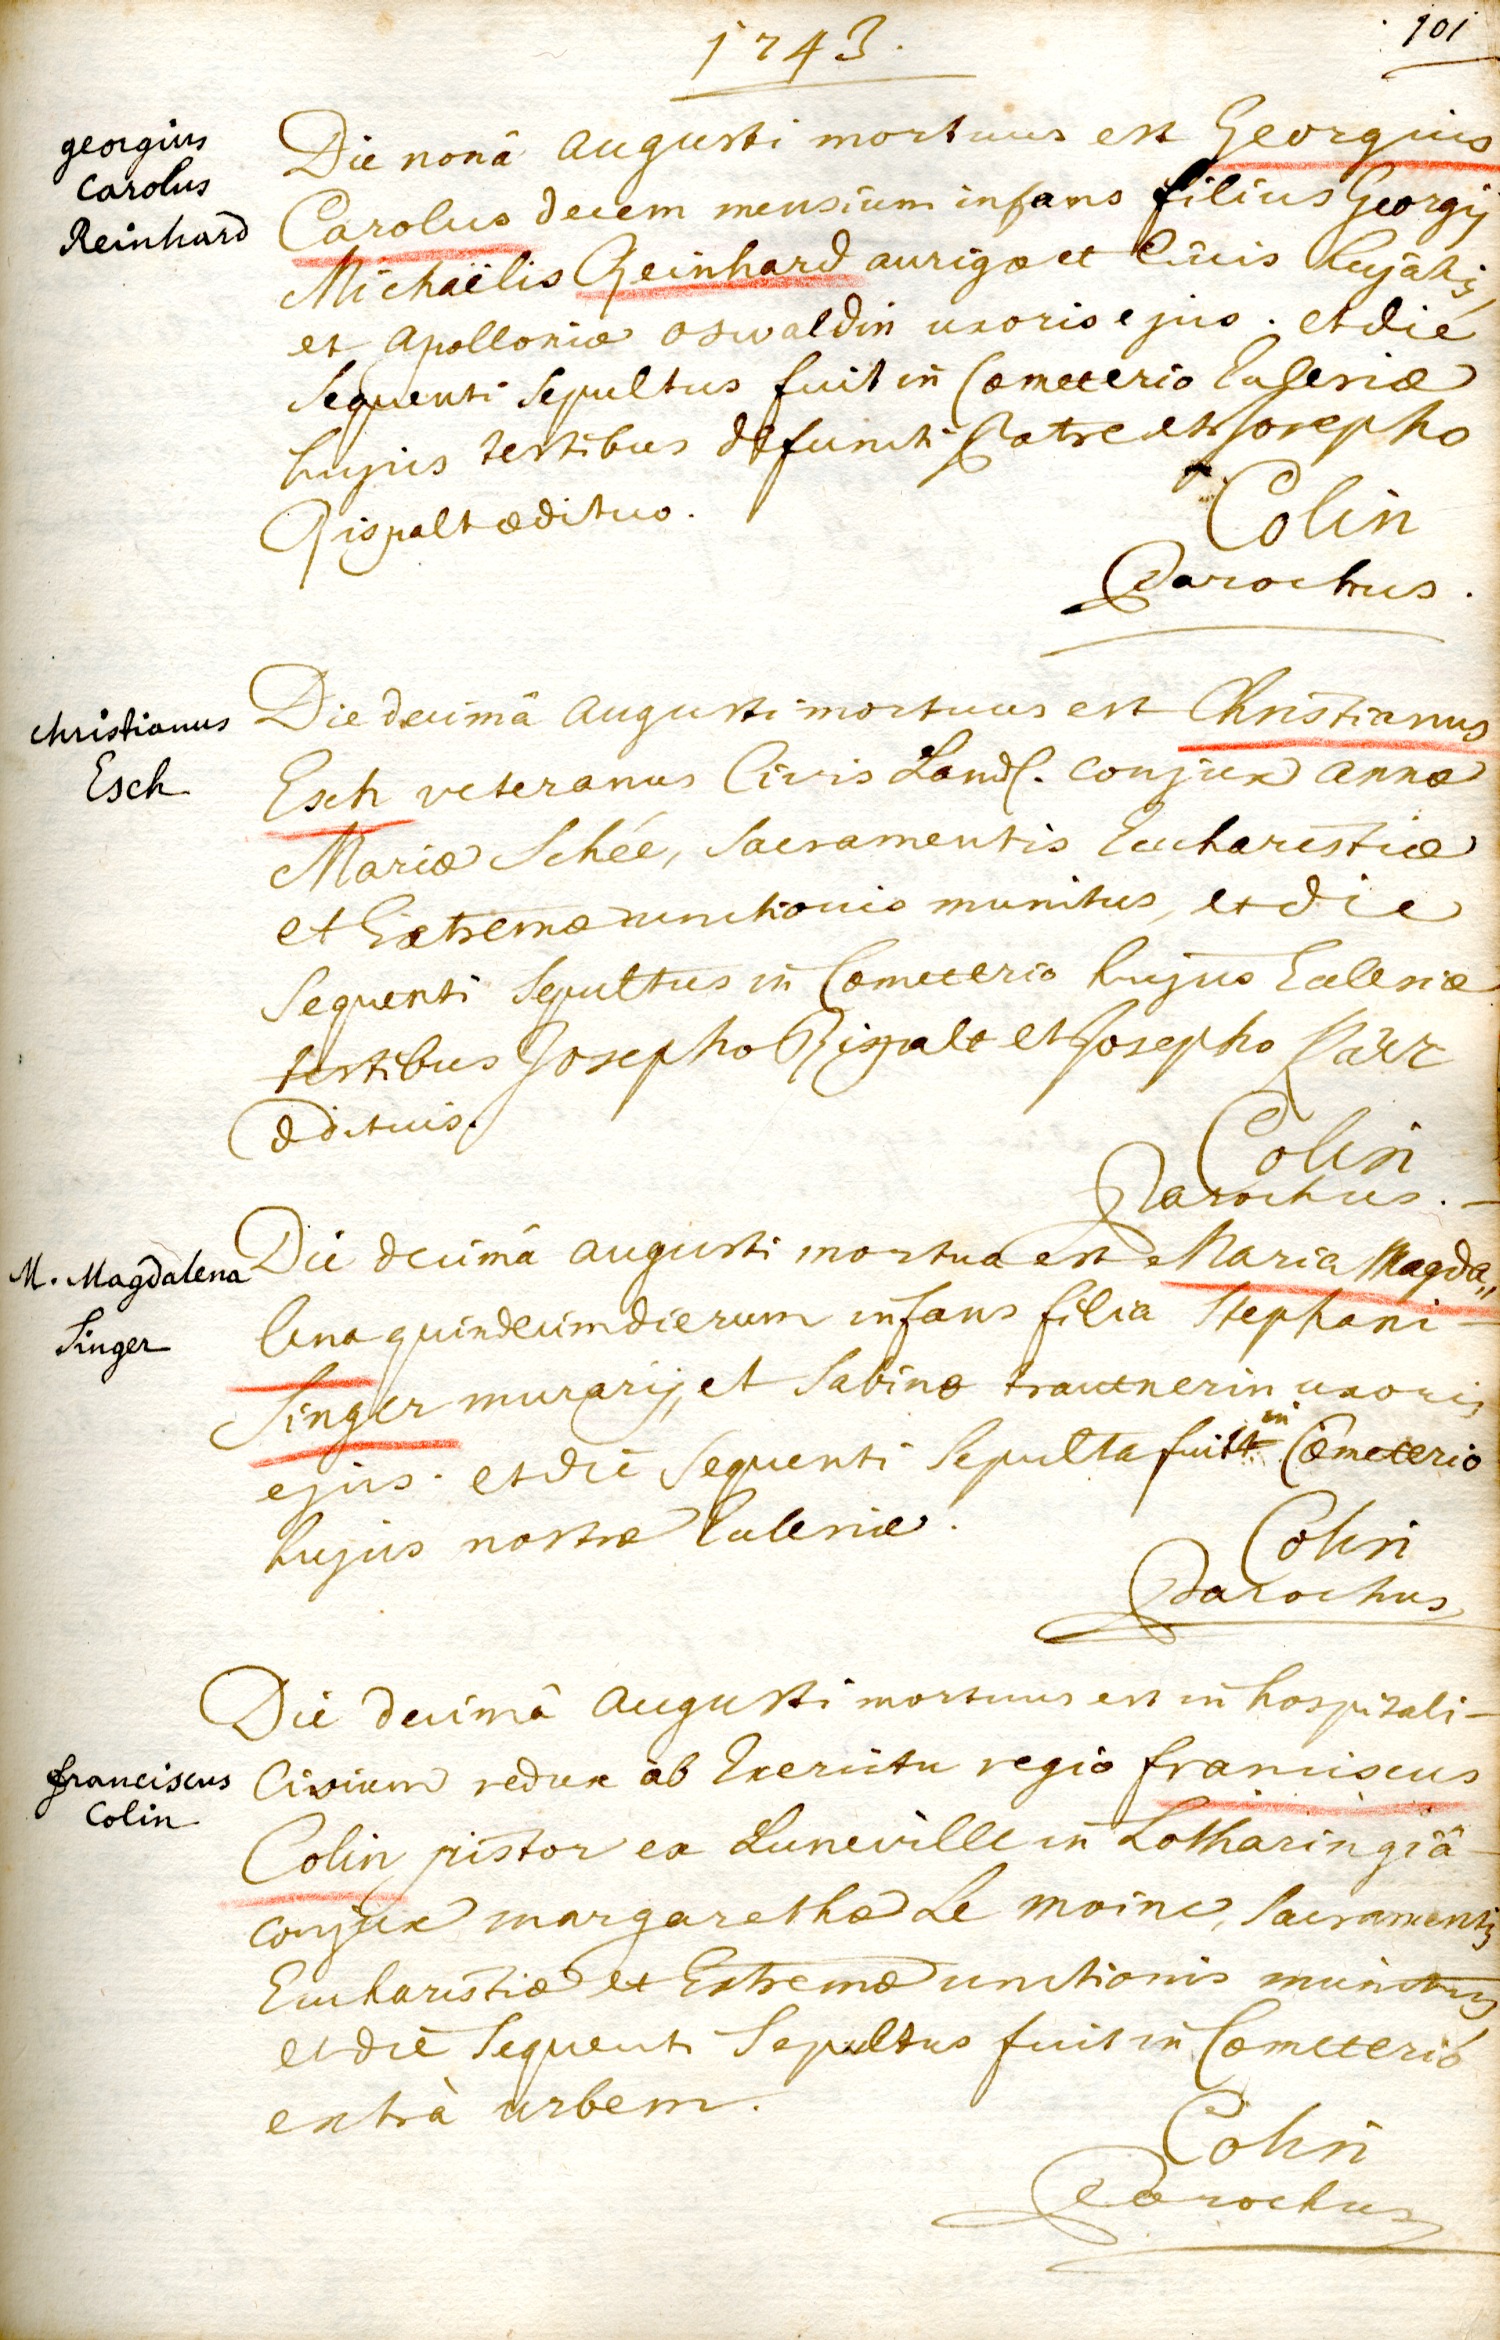 1743.
101
georgius
Carolus
Reinhard
Die nonâ augusti mortuus est Georgius
Carolus decem mensium infans filius Georgij
Michaëlis Reinhard aurigæ et Civis hujatis,
et Apolloniæ oswaldin uxoris ejus. et die
sequenti sepultus fuit in Cœmeterio Ecclesiæ
hujus testibus defuncti Patre et Josepho
Rispalt ædituo.
Colin
Parochus.
Christianus
Esch
Die decimâ augusti mortuus est Christianus
Esch veteranus Civis Land. conjux annæ
Mariæ Schée, sacramentis Eucharistiæ
et Extremæ unctionis munitus, et die
sequenti sepultus in Cœmeterio hujus Ecclesiæ
testibus Josepho Rispalt et Josepho
ædituis.
Colin
Parochus.
M. Magdalena
Singer
Die decimâ augusti mortua est Maria Magda„
lena quindecim dierum infans filia Stephani
Singer murarij, et Sabinæ trautnerin uxoris
ejus. et die sequenti sepulta fuit in Cœmeterio
hujus nostræ Ecclesiæ.
Colin
Parochus
franciscus
Colin
Die decimâ augusti mortuus est in hospitali
Civium redux ab Exercitu regio franciscus
Colin pistor ex Luneville in Lotharingiâ
conjux margarethæ Le moine, sacramentis
Eucharistiæ et Extremæ unctionis munitus
et die sequenti sepultus fuit in Cœmeterio
extrà urbem.
Colin
Parochus